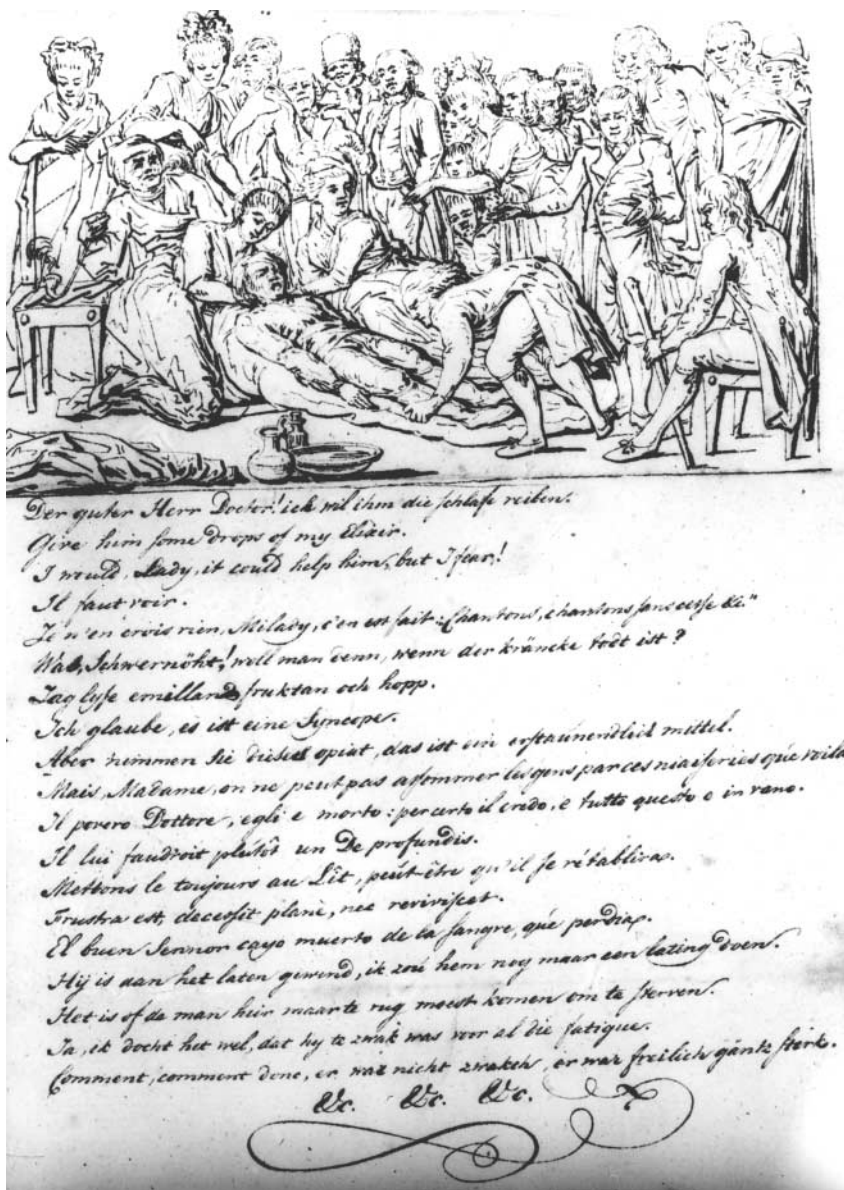 Der guter Herr Doctor! ick wil ihm die schlafe reiben.
Give him some drops of my Elixir.
I would, Lady, it could help him, but I fear!
Il faut voir.
Je n'en crois rien, Milady, c'en est fait: "Chantons, chantons sans cesse &c."
Was, Schwernöht! woll man denn, wenn der kräncke todt ist?
Jag lyse emilland fruktan och hopp.
Ich glaube, es ist eine Syncope.
Aber nimmen Sie dieses opiat, das ist ein erstaunendlich mittel.
Mais, Madame, on ne peut pas assommer les gens par ces niaiseries que voila
Il povero Dottore, egli e morto: per certo il credo, e tutto questo e in vano.
Il lui faudroit plûtôt un De profundis.
Mettons le toujours au Lit, peût être qu'il se rétablira.
Frustra est, decessit planè, nec reviviscet.
El buen Sennor cayo muerto de la sangre, que perdia.
Hij is aan het laten gewend, ik zoú hem nog maar een lating doen.
Het is of de man hier maar te rug moest komen om te sterven.
Ja, ik docht het wel, dat hy te zwak was voor al die fatigue.
Comment, comment donc, er waz nicht zwakch, er waz freilich gäntz stërk.
&c. &c. &c.